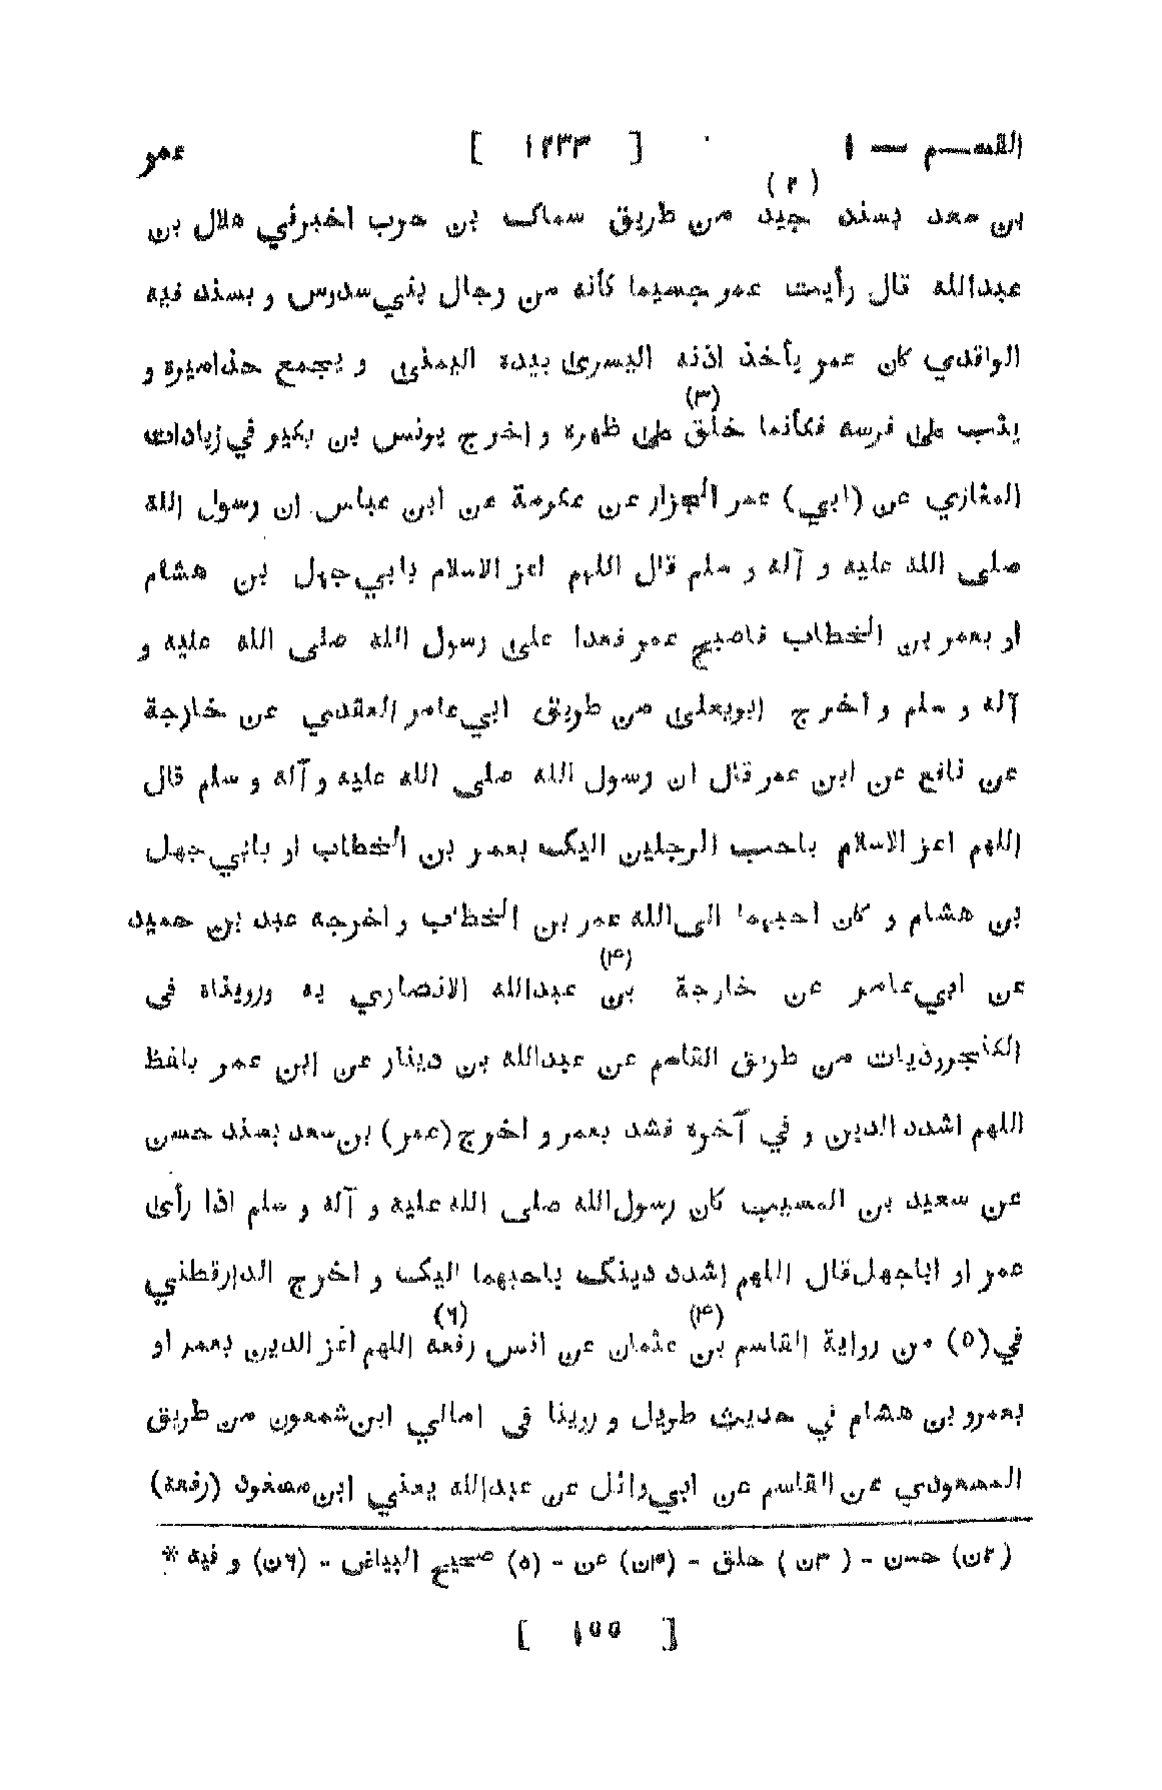 القسم — ١ [ ١٢٣٣ ] عمر
(٢)
بن سعد بسند جيد من طريق سماك بن حرب اخبرني هلال بن
عبدالله قال رأيت عمر جسيما كأنه من رجال بني سدوس و بسند فيه
الواقدي كان عمر يأخذ اذنه اليسرى بيده اليمنى و يجمع جذاميره و
(٣)
يثب على فرسه فكأنما خلق على ظهره و اخرج يونس بن بكير في زيادات
المغازي عن (ابي) عمر الجزار عن عكرمة عن ابن عباس ان رسول الله
صلى الله عليه و آله و سلم قال اللهم اعز الاسلام بابي جهل بن هشام
او بعمر بن الخطاب فاصبح عمر فغدا على رسول الله صلى الله عليه و
آله و سلم و اخرج ابويعلى من طريق ابي عامر العقدي عن خارجة
عن نافع عن ابن عمر قال ان رسول الله صلى الله عليه و آله و سلم قال
اللهم اعز الاسلام باحب الرجلين اليك بعمر بن الخطاب او بابي جهل
بن هشام و كان احبهما الى الله عمر بن الخطاب و اخرجه عبد بن حميد
(٤)
عن ابي عامر عن خارجة بن عبدالله الانصاري به ورويناه فى
الكنجروذيات من طريق القاسم عن عبدالله بن دينار عن ابن عمر بلفظ
اللهم اشدد الدين و في آخره فشد بعمر و اخرج (عمر) بن سعد بسند حسن
عن سعيد بن المسيب كان رسول الله صلى الله عليه و آله و سلم اذا رأى
عمر او اباجهل قال اللهم اشدد دينك باحبهما اليك و اخرج الدارقطني
(٤) (٦)
في (٥) من رواية القاسم بن عثمان عن انس رفعه اللهم اعز الدين بعمر او
بعمرو بن هشام في حديث طويل و روينا فى امالي ابن شمعون من طريق
المسعودي عن القاسم عن ابي وائل عن عبدالله يعني ابن مسعود (رفعه)
(٢ن) حسن - (٣ن) حلق - (٤ن) عن - (٥) صحيح البياض - (٦ن) و فيه *
[ ١٥٥ ]